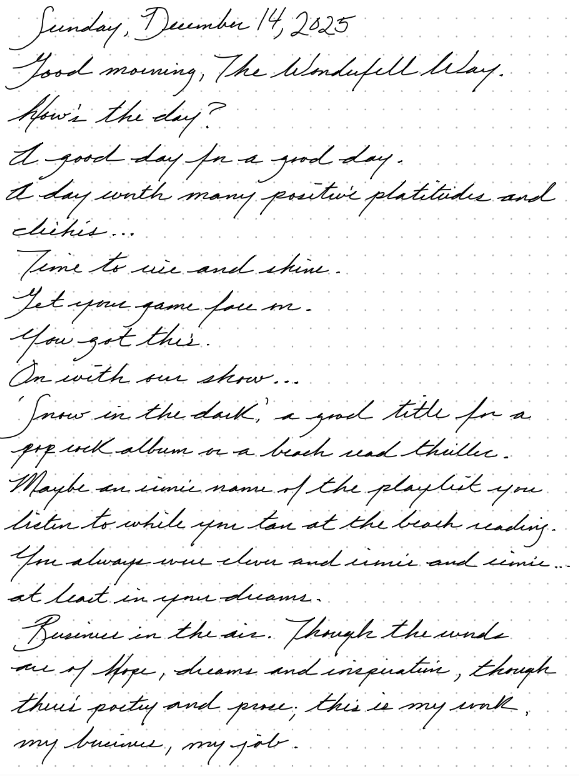 Sunday, December 14, 2025
Good morning, The Wonderfull Way.
How's the day?
A good day for a good day.
A day worth many positive platitudes and
clichés...
Time to rise and shine.
Get your game face on.
You got this.
On with our show...
'Snow in the dark', a good title for a
pop rock album or a beach read thriller.
Maybe an ironic name of the playlist you
listen to while you tan at the beach reading.
You always were clever and ironic and ironic...
at least in your dreams.
Business in the air. Though the words
are of Hope, dreams and inspiration, though
there's poetry and prose; this is my work,
my business, my job.